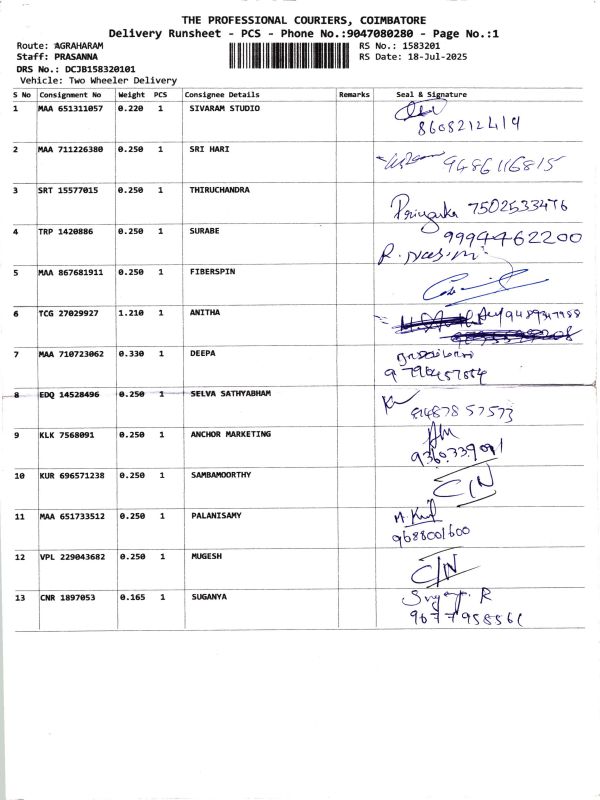 THE PROFESSIONAL COURIERS, COIMBATORE
Delivery Runsheet - PCS - Phone No.:9047080280 - Page No.:1
Route: AGRAHARAM
Staff: PRASANNA
DRS No.: DCJB158320101
Vehicle: Two Wheeler Delivery
RS No.: 1583201
RS Date: 18-Jul-2025
S No Consignment No Weight PCS Consignee Details Remarks Seal & Signature
1 MAA 651311057 0.220 1 SIVARAM STUDIO
8608212419
2 MAA 711226380 0.250 1 SRI HARI 9486116815
3 SRT 15577015 0.250 1 THIRUCHANDRA
Priyanka 7502533476
4 TRP 1420886 0.250 1 SURABE 9994462200
5 MAA 867681911 0.250 1 FIBERSPIN
6 TCG 27029927 1.210 1 ANITHA
7 MAA 710723062 0.330 1 DEEPA
8 EDQ 14528496 0.250 1 SELVA SATHYABHAM
8148785 7573
9 KLK 7568091 0.250 1 ANCHOR MARKETING
9360339091
10 KUR 696571238 0.250 1 SAMBAMOORTHY
C/N
11 MAA 651733512 0.250 1 PALANISAMY
9688001600
12 VPL 229043682 0.250 1 MUGESH
C/N
13 CNR 1897053 0.165 1 SUGANYA
9677958561